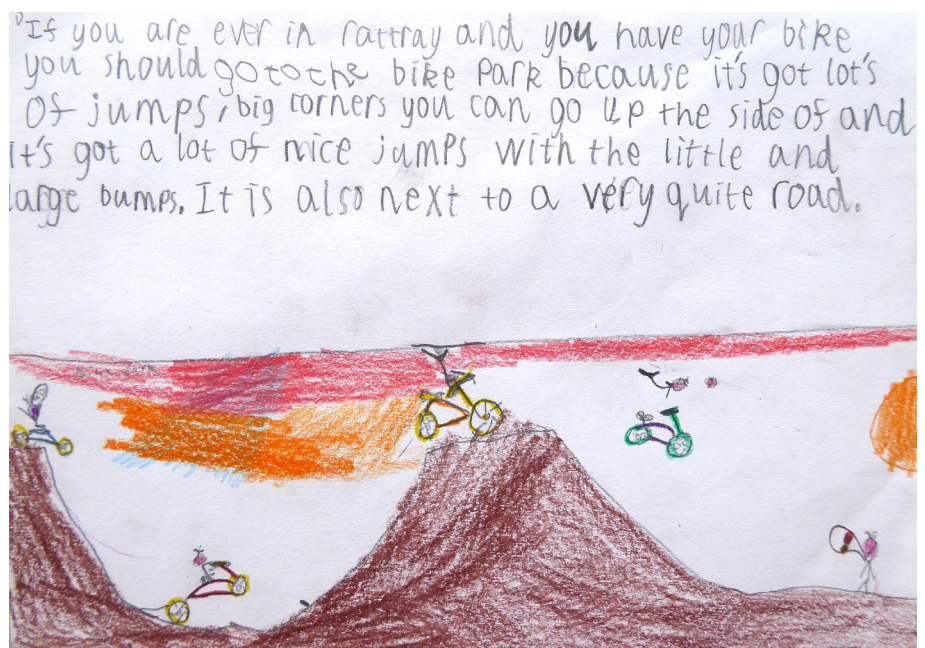 "If you are ever in rattray and you have your bike
you should go to the bike Park because it's got lot's
of jumps, big corners you can go up the side of and
it's got a lot of nice jumps with the little and
large bumps. It is also next to a very quite road.